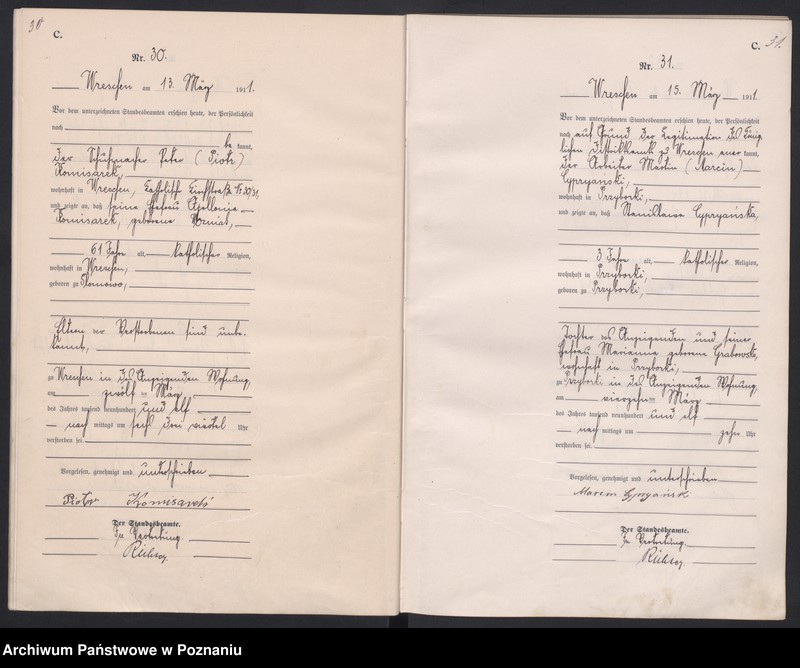 30
C.
Nr. 30.
Wreschen am 13. März 1911.
Vor dem unterzeichneten Standesbeamten erschien heute, der Persönlichkeit
nach
be kannt,
der Schuhmacher Peter (Piotr)
Komisarek,
wohnhaft in Wreschen, Katholische
und zeigte an, daß seine Ehefrau Apollonia
Komisarek, geborene
61 Jahre alt, katholischer Religion,
wohnhaft in Wreschen,
geboren zu
Eltern der Verstorbenen sind unbe-
kannt,
zu Wreschen in des Anzeigenden Wohnung,
am zwölf ten März
des Jahres tausend neunhundert und elf
nach mittags um sechs drei viertel Uhr
verstorben sei.
Vorgelesen, genehmigt und unterschrieben
Piotr Komisarek
Der Standesbeamte.
In Vertretung.
C. 31.
Nr. 31.
Wreschen am 15. März 1911.
Vor dem unterzeichneten Standesbeamten erschien heute, der Persönlichkeit
nach auf Grund der Legitimation des König-
lichen Distriktsamts zu Wreschen aner kannt,
der Arbeiter Martin (Marcin)
Cypryański,
wohnhaft in Przyborki,
und zeigte an, daß Stanislawa Cypryańska,
3 Jahre alt, katholischer Religion,
wohnhaft in Przyborki,
geboren zu Przyborki,
Tochter des Anzeigenden und seiner
Ehefrau Marianna geborene Grabowska,
wohnhaft in Przyborki,
zu Przyborki in des Anzeigenden Wohnung,
am vierzehn ten März
des Jahres tausend neunhundert und elf
nach mittags um zehn Uhr
verstorben sei.
Vorgelesen, genehmigt und unterschrieben
Marcin Cypryański
Der Standesbeamte.
In Vertretung.
Archiwum Państwowe w Poznaniu